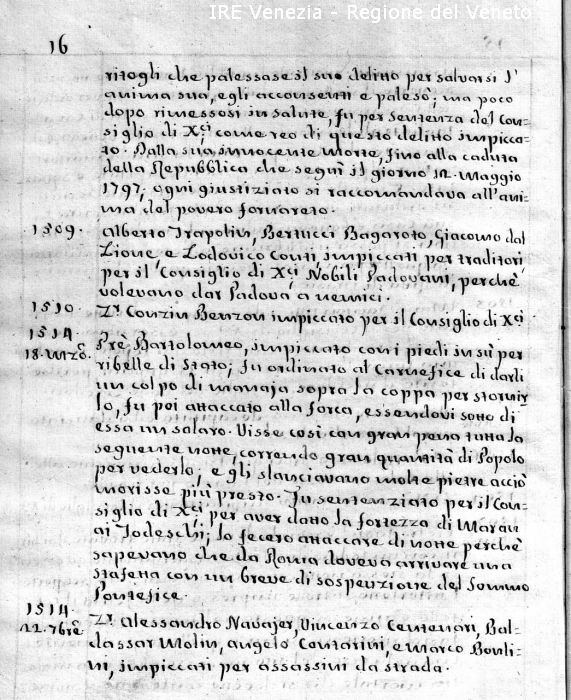 IRE Venezia - Regione del Veneto
16
ritogli che palessase il suo delitto per salvarsi l'
anima sua, egli acconsentì e palesò; ma poco
dopo rimessosi in salute, fu per sentenza del Con=
siglio di Xci come reo di questo delitto impicca=
to. Dalla sua innocente morte, fino alla caduta
della Repubblica che seguì il giorno 12. Maggio
1797, ogni giustiziato si raccomandava all'ani=
ma del povero fornareto.
1509. Alberto Trapolin, Bertucci Bagaroto, Giacomo dal
Lione e Lodovico Conti impiccati per traditori
per il Consiglio di Xci Nobili Padovani, perchè
volevano dar Padova a nemici.
1510 Zr Conzin Benzon impiccato per il Consiglio di Xci
1514
18. Mzo. Prè Bartolomeo, impiccato con i piedi in sù per
ribelle di Stato; fu ordinato al Carnefice di darli
un colpo di manaja sopra la coppa per stornir
lo, fu poi attaccato alla forca, essendovi sotto di
essa un salaro. Visse così con gran pena tutta la
seguente notte, correndo gran quantità di Popolo
per vederlo; e gli slanciavano molte pietre acciò
morisse più presto. Fu sentenziato per il Con=
siglio di Xci per aver datto la fortezza di Maran
ai Todeschi; lo fecero attaccare di notte perchè
sapevano che da Roma doveva arrivare una
stafetta con un breve di sospenzione del Sommo
Pontefice.
1514
22. 7bre. Zr Alessandro Navajer, Vincenzo Centenari, Bal=
dassar Molin, Angelo Contarini, e Marco Bonli=
ni, impiccati per assassini da strada.